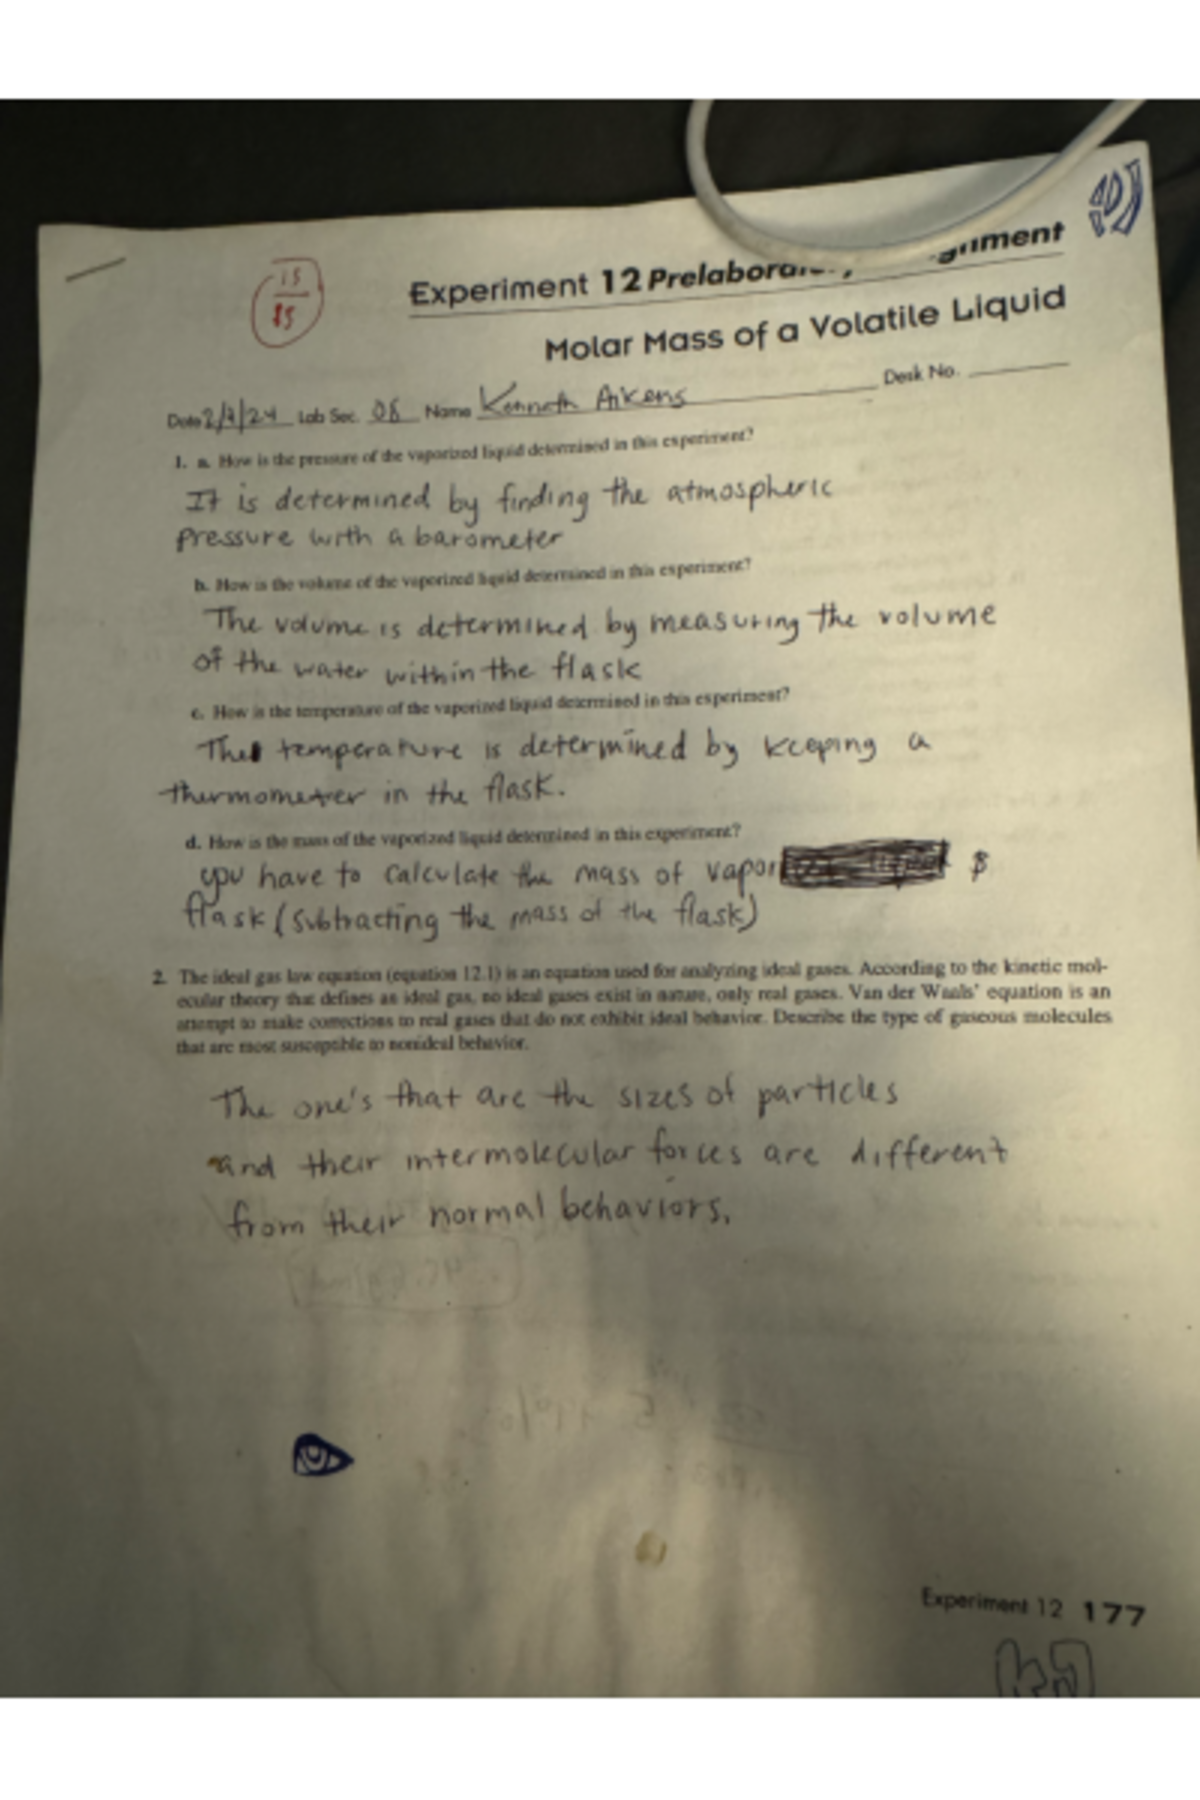 15
15
Experiment 12 Prelabora
gnment
Molar Mass of a Volatile Liquid
Date 2/2/24 Lab Sec. 08 Name Kenneth Aikens Desk No.
1. a. How is the pressure of the vaporized liquid determined in this experiment?
It is determined by finding the atmospheric
pressure with a barometer
b. How is the volume of the vaporized liquid determined in this experiment?
The volume is determined by measuring the volume
of the water within the flask
c. How is the temperature of the vaporized liquid determined in this experiment?
The temperature is determined by keeping a
thermometer in the flask.
d. How is the mass of the vaporized liquid determined in this experiment?
you have to calculate the mass of vapor &
flask (subtracting the mass of the flask)
2. The ideal gas law equation (equation 12.1) is an equation used for analyzing ideal gases. According to the kinetic mol-
ecular theory that defines an ideal gas, no ideal gases exist in nature, only real gases. Van der Waals' equation is an
attempt to make corrections to real gases that do not exhibit ideal behavior. Describe the type of gaseous molecules
that are most susceptible to nonideal behavior.
The one's that are the sizes of particles
and their intermolecular forces are different
from their normal behaviors.
Experiment 12 177